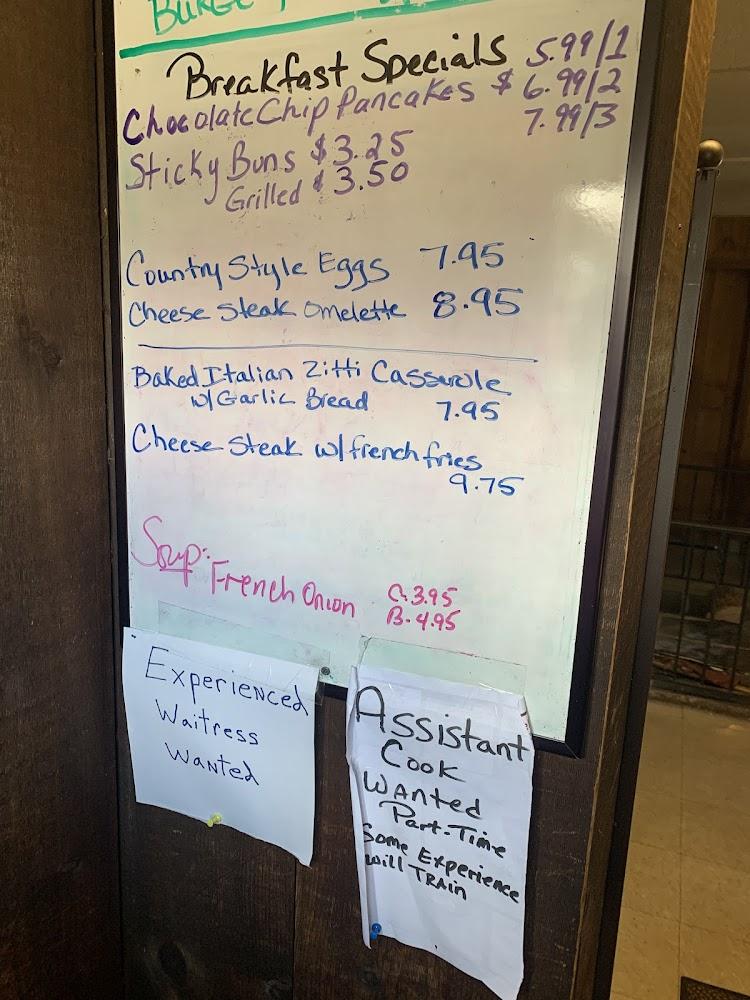 Breakfast Specials 5.99/1
Chocolate Chip Pancakes $ 6.99/2
7.99/3
Sticky Buns $3.25
Grilled $3.50
Country Style Eggs 7.95
Cheese Steak omelette 8.95
Baked Italian Zitti Casserole
w/ Garlic Bread 7.95
Cheese Steak w/ french fries
9.75
Soup: French Onion C. 3.95
B. 4.95
Experienced
Waitress
Wanted
Assistant
Cook
Wanted
Part-Time
Some Experience
will Train